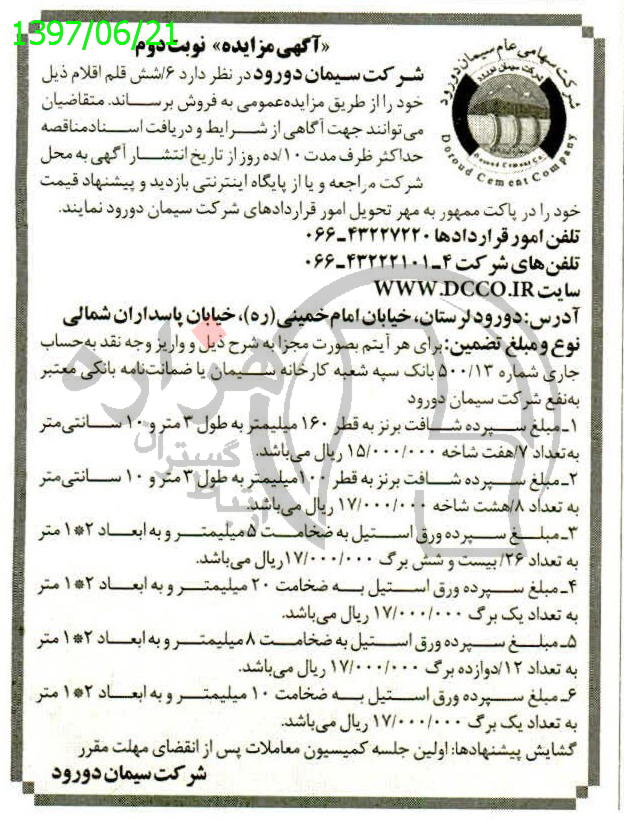 1397/06/21
«آگهی مزایده» نوبت دوم
شرکت سهامی عام سیمان دورود
شرکت سیمان دورود
Doroud Cement Co.
Doroud Cement Company
شرکت سیمان دورود در نظر دارد ۶/شش قلم اقلام ذیل
خود را از طریق مزایده‌عمومی به فروش برساند. متقاضیان
می‌توانند جهت آگاهی از شرایط و دریافت اسنادمناقصه
حداکثر ظرف مدت ۱۰/ده روز از تاریخ انتشار آگهی به محل
شرکت مراجعه و یا از پایگاه اینترنتی بازدید و پیشنهاد قیمت
خود را در پاکت ممهور به مهر تحویل امور قراردادهای شرکت سیمان دورود نمایند.
تلفن امور قراردادها ۴۳۲۲۷۲۲۰-۰۶۶
تلفن‌های شرکت ۴-۴۳۲۲۲۱۰۱-۰۶۶
سایت WWW.DCCO.IR
آدرس: دورود لرستان، خیابان امام خمینی (ره)، خیابان پاسداران شمالی
نوع و مبلغ تضمین: برای هر آیتم بصورت مجزا به شرح ذیل و واریز وجه نقد به‌حساب
جاری شماره ۵۰۰/۱۳ بانک سپه شعبه کارخانه سیمان یا ضمانت‌نامه بانکی معتبر
به‌نفع شرکت سیمان دورود
۱-مبلغ سپرده شافت برنز به قطر ۱۶۰ میلیمتر به طول ۳ متر و ۱۰ سانتی‌متر
به‌تعداد ۷/هفت شاخه ۱۵/۰۰۰/۰۰۰ ریال می‌باشد.
۲-مبلغ سپرده شافت برنز به قطر ۱۰۰میلیمتر به طول ۳ متر و ۱۰ سانتی‌متر
به تعداد ۸/هشت شاخه ۱۷/۰۰۰/۰۰۰ ریال می‌باشد.
۳-مبلغ سپرده ورق استیل به ضخامت ۵ میلیمتر و به ابعاد ۲*۱ متر
به تعداد ۲۶/ بیست و شش برگ ۱۷/۰۰۰/۰۰۰ریال می‌باشد.
۴-مبلغ سپرده ورق استیل به ضخامت ۲۰ میلیمتر و به ابعاد ۲*۱ متر
به تعداد یک برگ ۱۷/۰۰۰/۰۰۰ ریال می‌باشد.
۵-مبلغ سپرده ورق استیل به ضخامت ۸ میلیمتر و به ابعاد ۲*۱ متر
به تعداد ۱۲/دوازده برگ ۱۷/۰۰۰/۰۰۰ ریال می‌باشد.
۶-مبلغ سپرده ورق استیل به ضخامت ۱۰ میلیمتر و به ابعاد ۲*۱ متر
به تعداد یک برگ ۱۷/۰۰۰/۰۰۰ ریال می‌باشد.
گشایش پیشنهادها: اولین جلسه کمیسیون معاملات پس از انقضای مهلت مقرر
شرکت سیمان دورود
هزاره
گستران